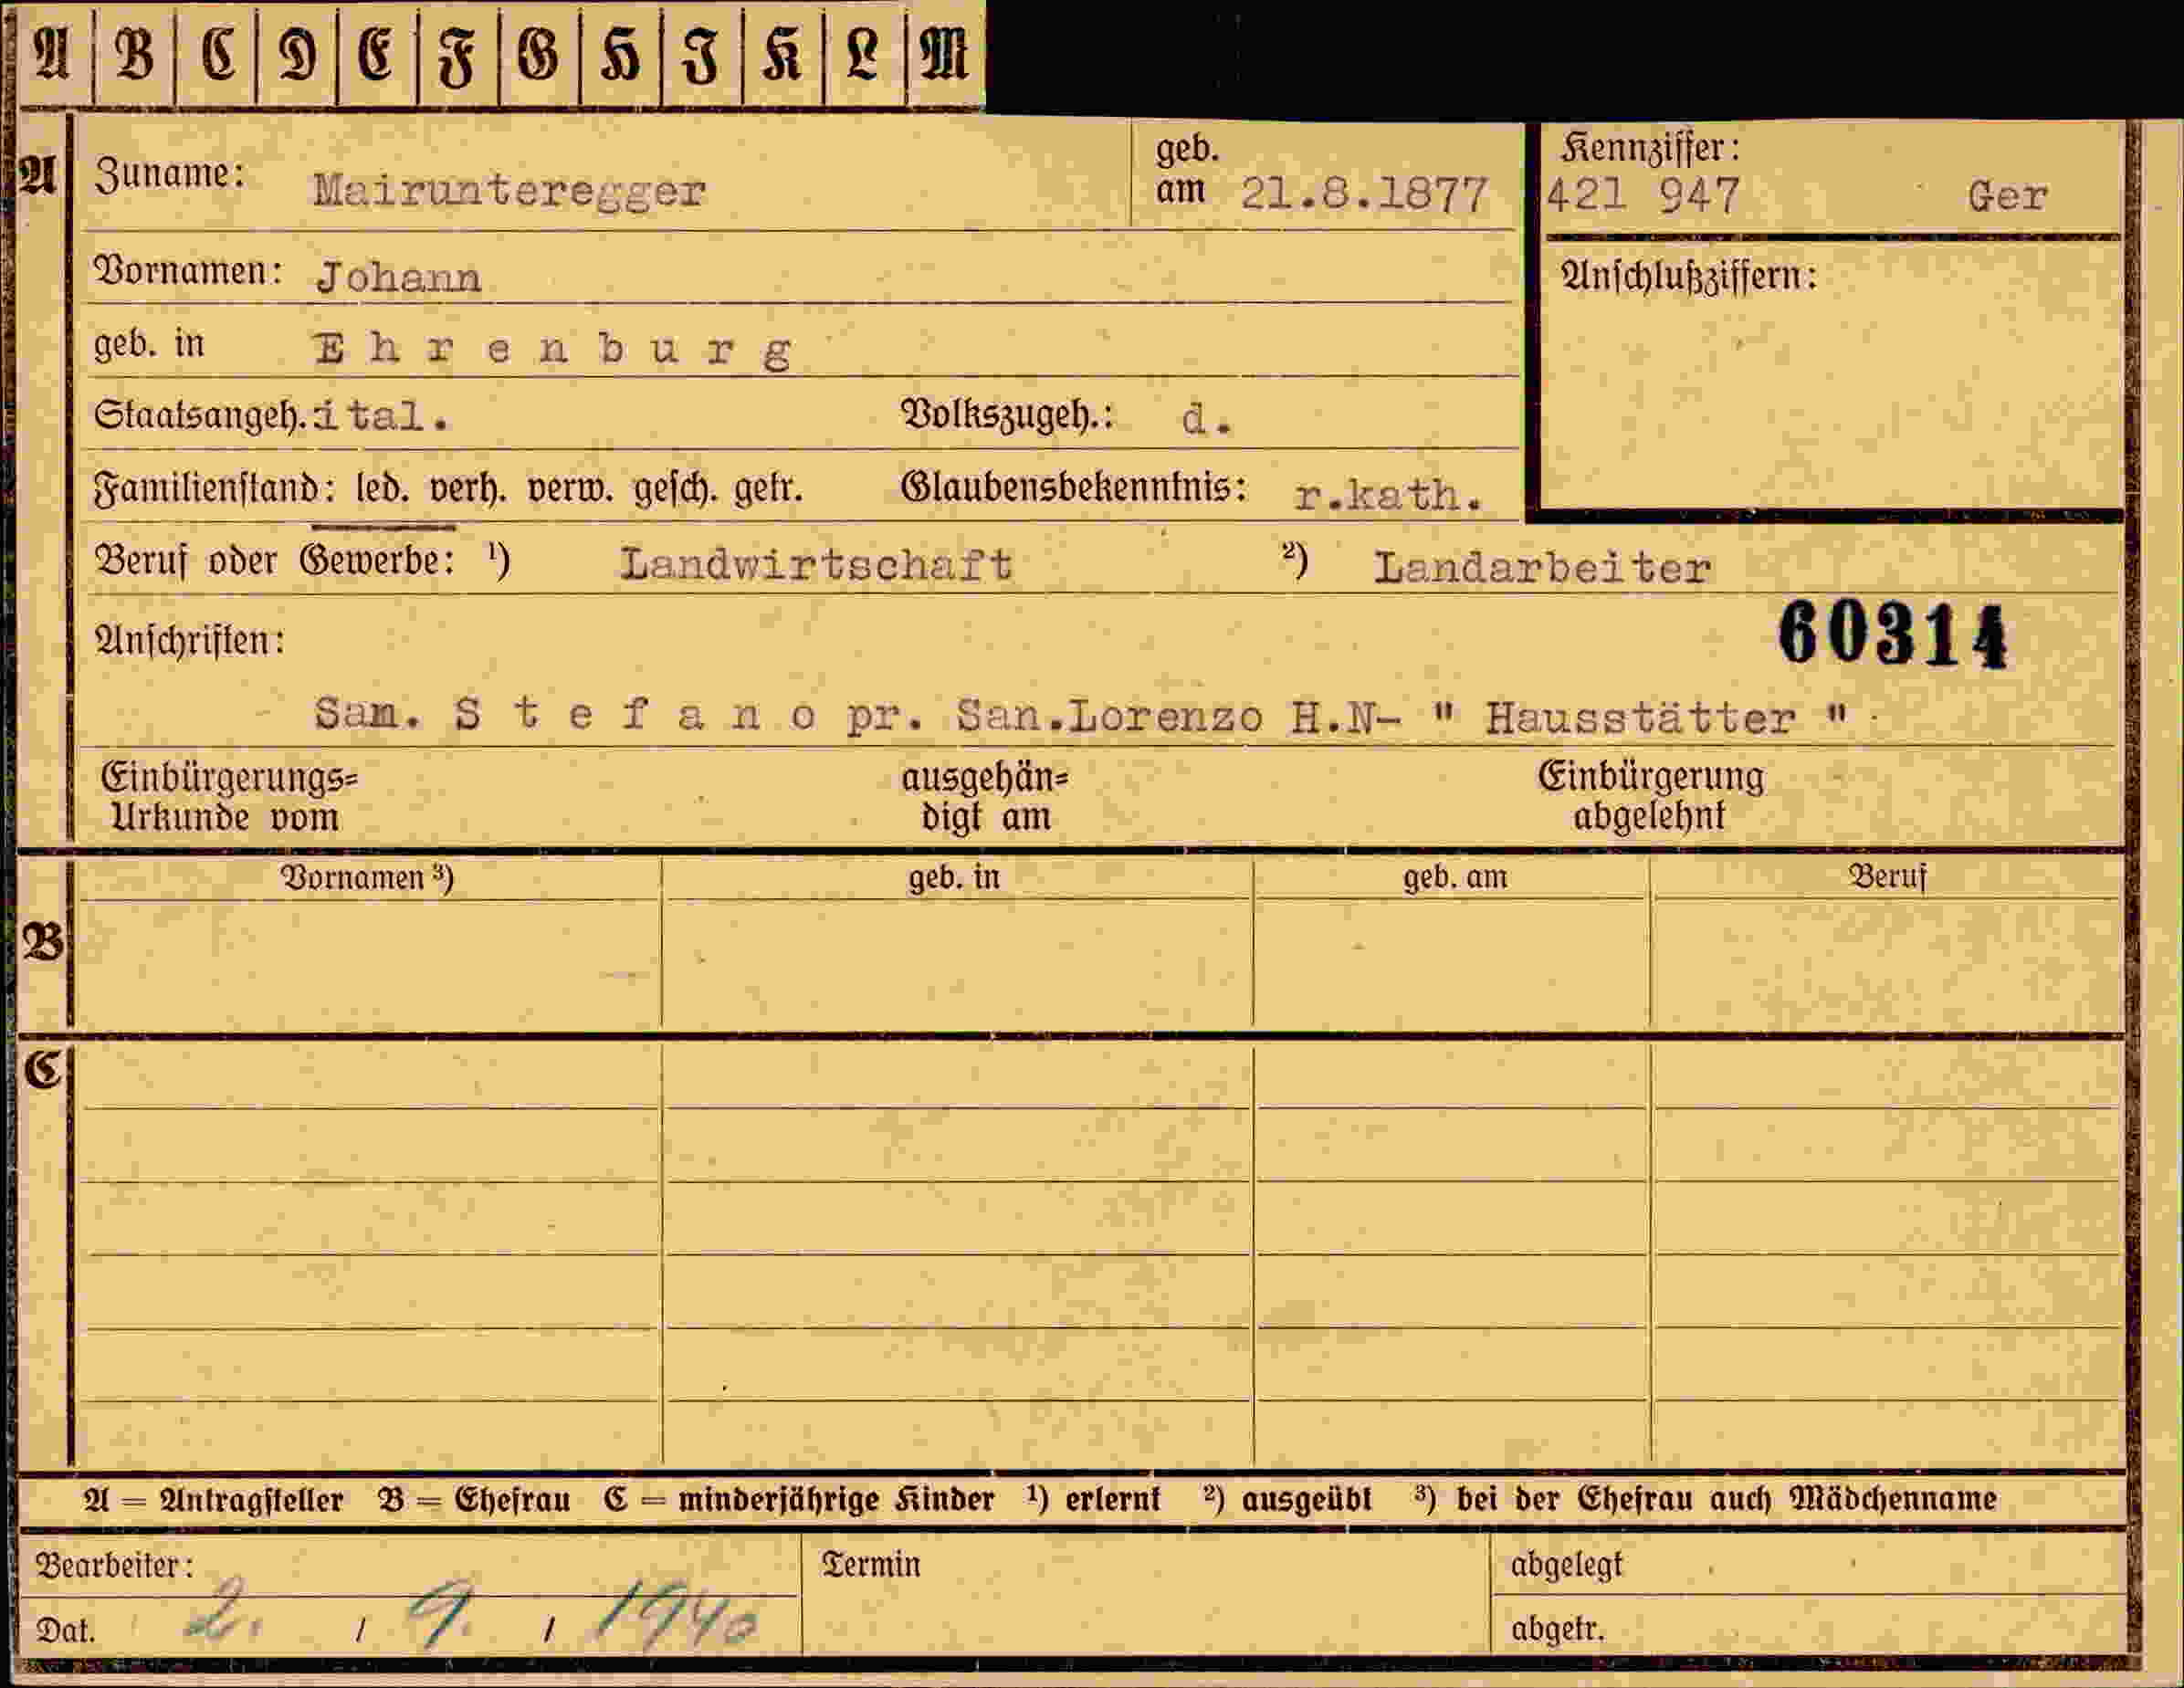 A B C D E F G H I K L M
A Zuname: Mairunteregger geb. am 21.8.1877 Kennziffer: 421 947 Ger
Vornamen: Johann Anschlußziffern:
geb. in Ehrenburg
Staatsangeh. ital. Volkszugeh.: d.
Familienstand: led. verh. verw. gesch. getr. Glaubensbekenntnis: r.kath.
Beruf oder Gewerbe: ¹) Landwirtschaft ²) Landarbeiter
Anschriften: 60314
San. Stefano pr. San.Lorenzo H.N- " Hausstätter "
Einbürgerungs= ausgehän= Einbürgerung
Urkunde vom digt am abgelehnt
Vornamen ³) geb. in geb. am Beruf
B
C
A = Antragsteller B = Ehefrau C = minderjährige Kinder ¹) erlernt ²) ausgeübt ³) bei der Ehefrau auch Mädchenname
Bearbeiter: Termin abgelegt
Dat. 2. / 9. / 1940 abgetr.